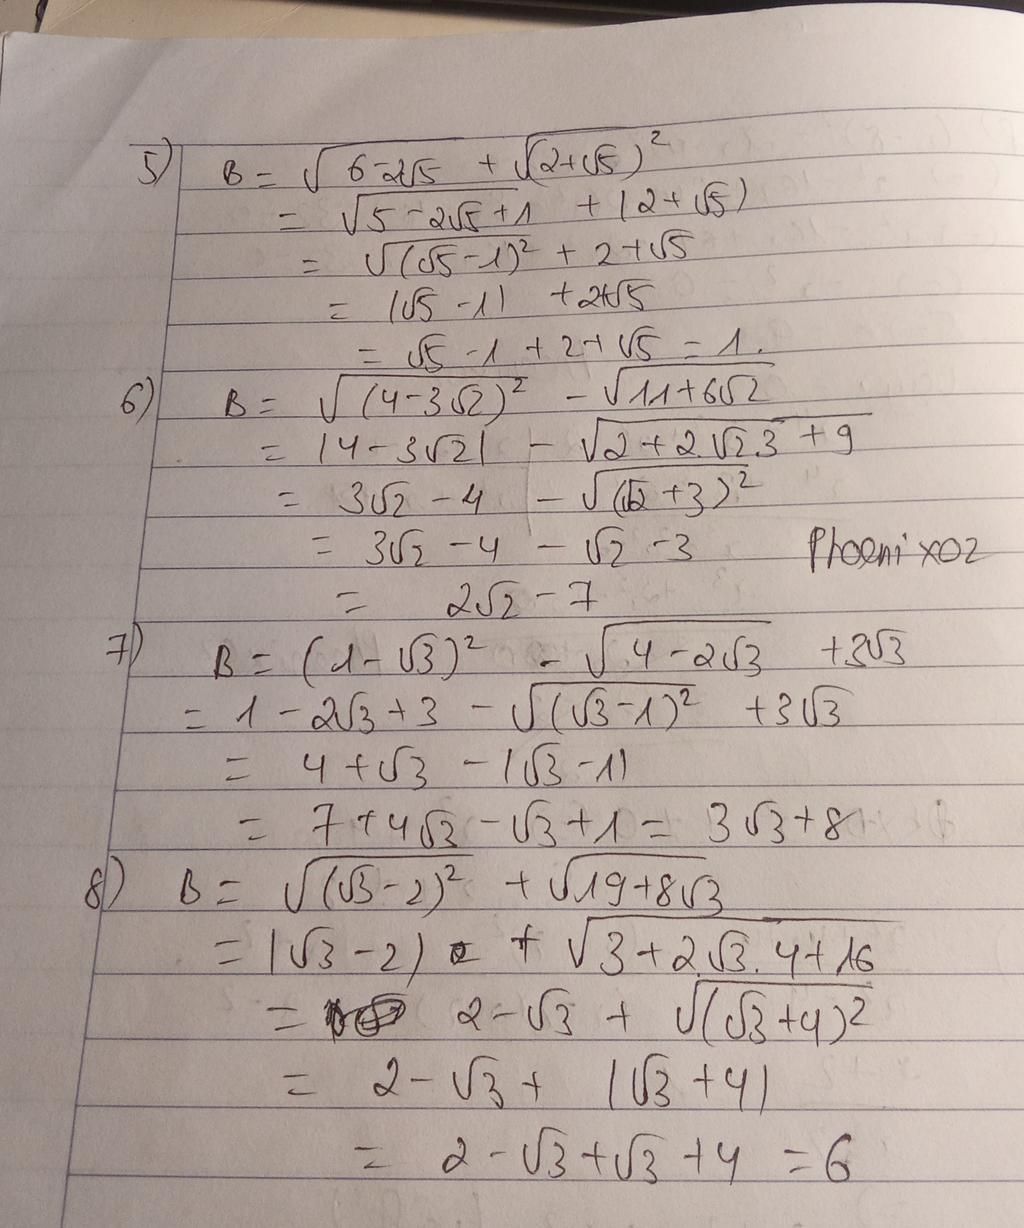 5) B = √(6-2√5) + √(2+√5)²
= √(5-2√5+1) + |2+√5)
= √(√5-1)² + 2+√5
= |√5-1| + 2+√5
= √5-1+2+√5 = 1.
6) B = √(4-3√2)² - √(11+6√2)
= |4-3√2| - √(2+2.√2.3+9)
= 3√2-4 - √(√2+3)²
= 3√2-4 - √2-3 Phoenix02
= 2√2-7
7) B = (1-√3)² - √(4-2√3) + 3√3
= 1-2√3+3 - √(√3-1)² + 3√3
= 4+√3 - |√3-1|
= 7+4√3-√3+1 = 3√3+8
8) B = √(√3-2)² + √(19+8√3)
= |√3-2) + √(3+2.√3.4+16)
= 2-√3 + √(√3+4)²
= 2-√3 + |√3+4|
= 2-√3+√3+4 = 6